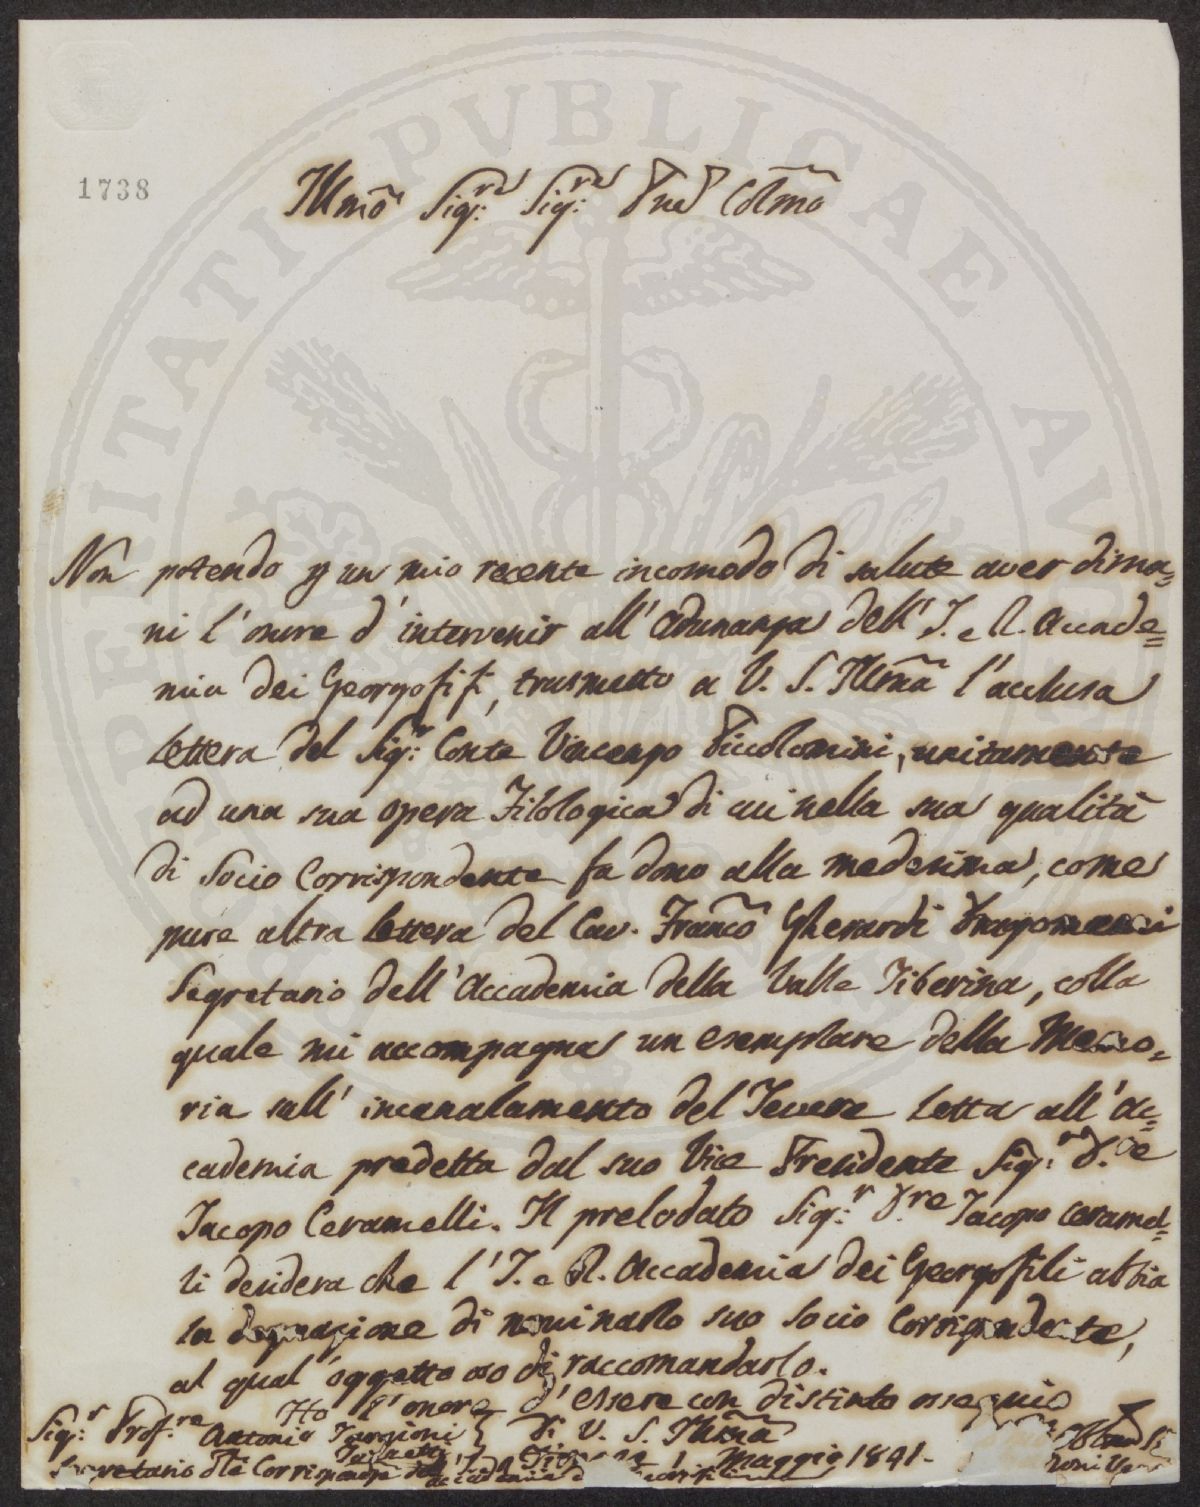 PROSPERITATI PVBLICAE AVGENDAE
1738
Illmo Sig:re Sig:re Prne Colmo
Non potendo p un mio recente incomodo di salute aver dima=
ni l'onore d'intervenir all'Adunanza dell'I. e R. Accade=
mia dei Georgofifi, trasmetto a V. S. Illma l'acclusa
lettera del Sig:r Conte Vincenzo Piccolomini, unitamente
ad una sua opera Filologica di cui nella sua qualità
di Socio Corrispondente fa dono alla medesima, come
pure altra lettera del Cav. Franco Gherardi Dragomanni
Segretario dell'Accademia della Valle Tiberina, colla
quale mi accompagna un esemplare della Memo=
ria sull'incanalamento del Tevere letta all'Ac=
cademia predetta dal suo Vice Presidente Sig:r
Jacopo Ceramelli. Il prelodato Sig:r Jacopo Ceramel=
li desidera che l'I. e R. Accademia dei Georgofili abbia
la degnazione di nominarlo suo Socio Corrispondente,
al qual'oggetto oso di raccomandarlo.
Ho l'onore d'essere con distinto ossequio
Sig:r Prof:re Antonio Targioni Di V. S. Illma
Tozzetti
Segretario dla Corrispondza Maggio 1841.